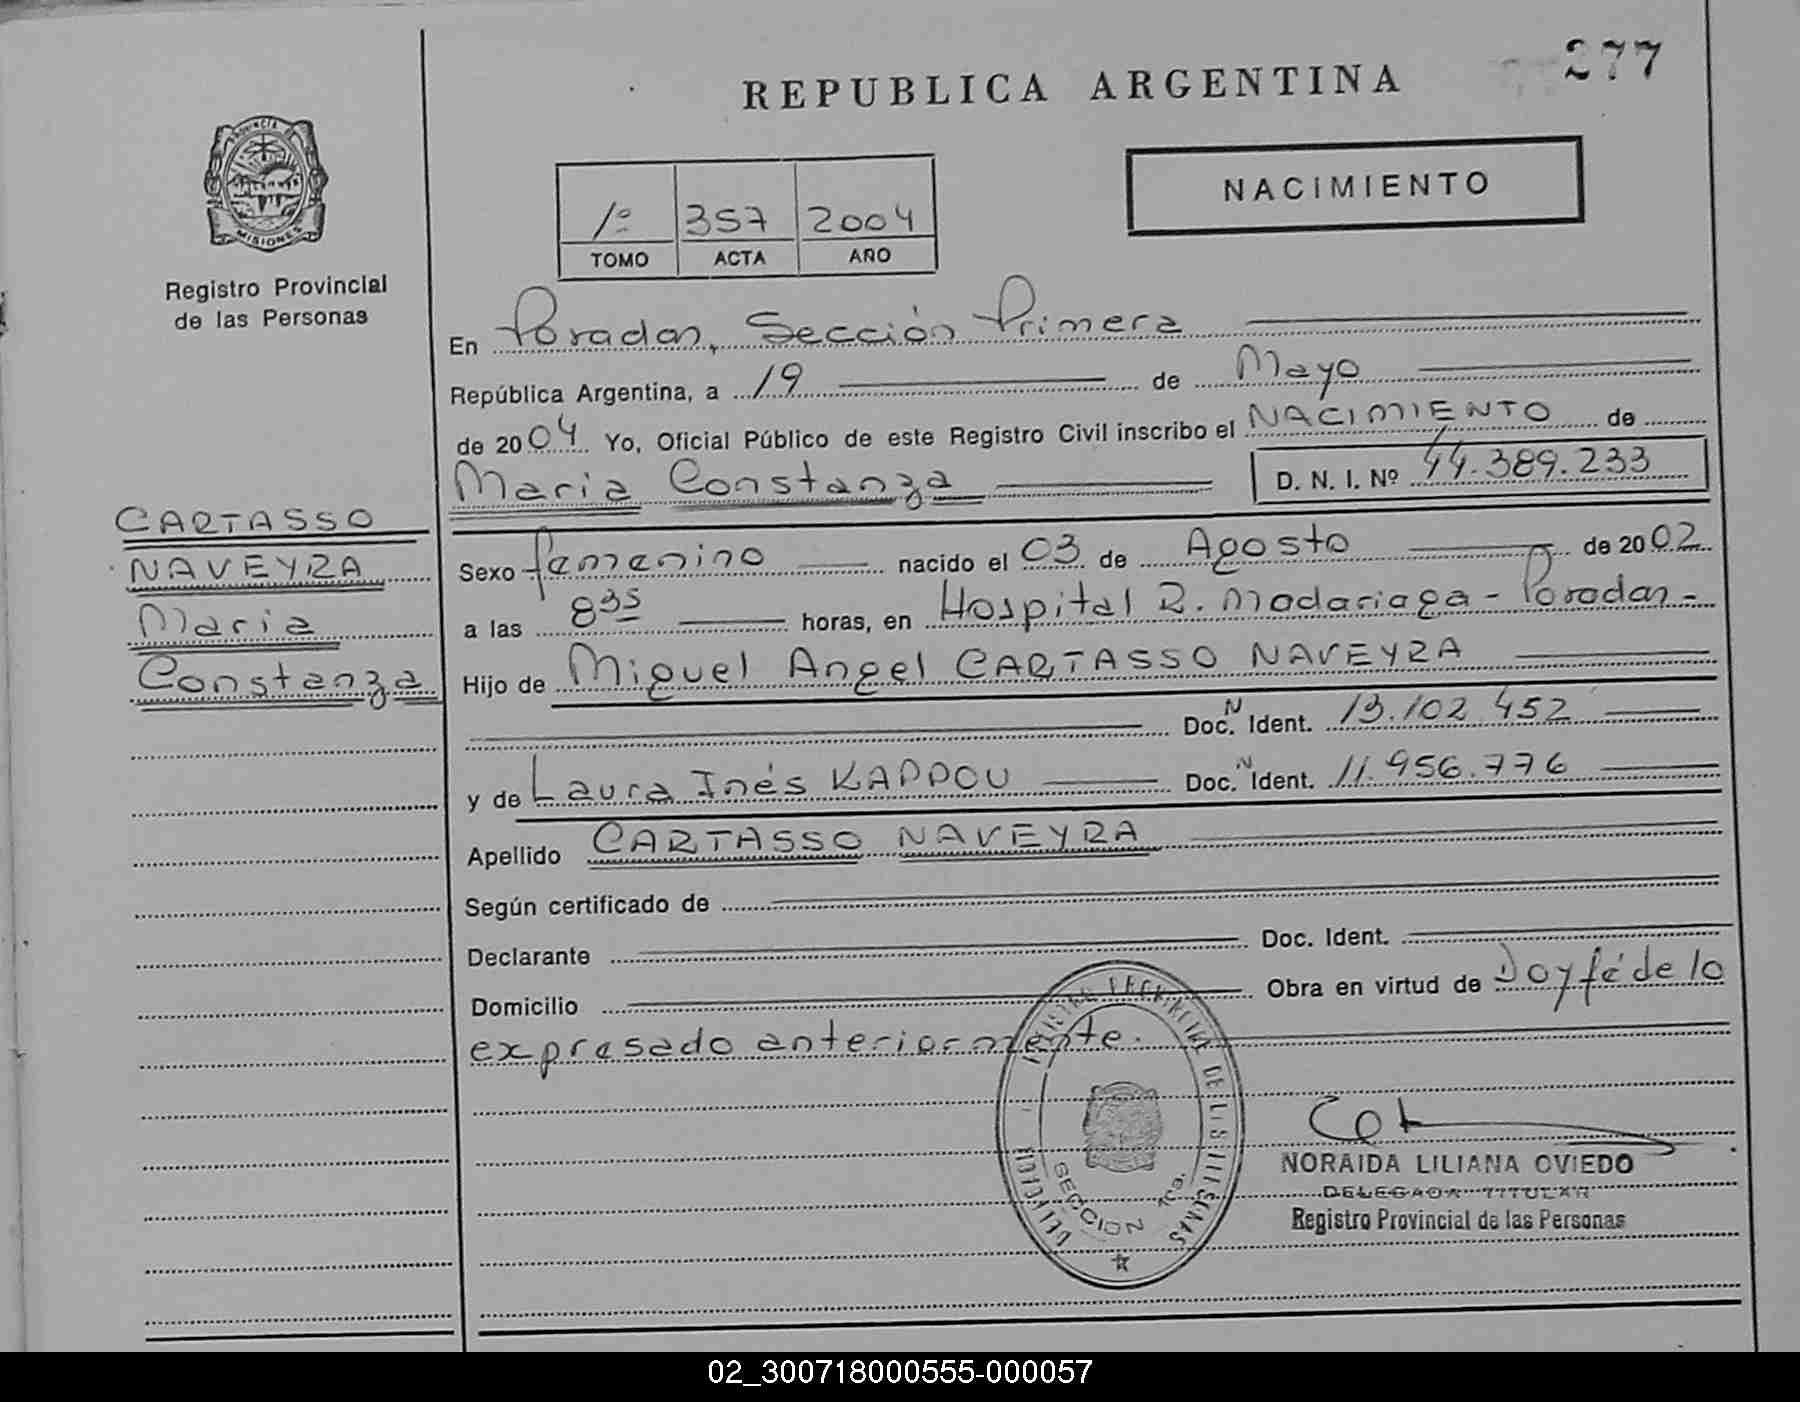 277
REPUBLICA ARGENTINA
PROVINCIA DE
MISIONES
Registro Provincial
de las Personas
1º 357 2004
TOMO ACTA AÑO
NACIMIENTO
En Posadas, Sección Primera
República Argentina, a 19 de Mayo
de 2004 Yo, Oficial Público de este Registro Civil inscribo el NACIMIENTO de
Maria Constanza D. N. I. Nº 44.389.233
CARTASSO
NAVEYRA
Maria
Constanza
Sexo femenino nacido el 03 de Agosto de 2002
a las 8 35 horas, en Hospital R. Madariaga - Posadas -
Hijo de Miguel Angel CARTASSO NAVEYRA
Doc. N Ident. 13.102.452
y de Laura Inés KAPPOU Doc. N Ident. 11.956.776
Apellido CARTASSO NAVEYRA
Según certificado de
Declarante Doc. Ident.
Domicilio Obra en virtud de Doy fé de lo
expresado anteriormente.
REGISTRO PROVINCIAL DE LAS
SECCION 1ra.
NORAIDA LILIANA OVIEDO
DELEGADA TITULAR
Registro Provincial de las Personas
02_300718000555-000057